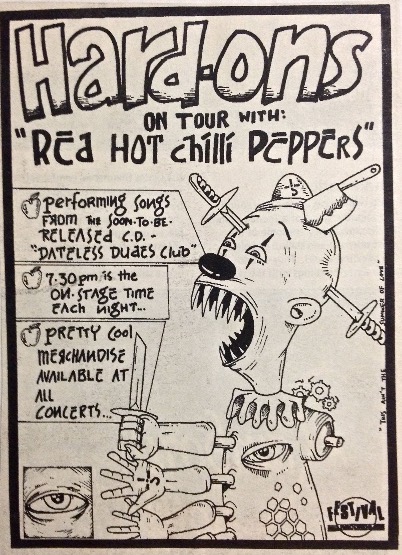 Hard-ons
ON TOUR WITH:
"RĒd HOT chilli PĒPPERS"
performing songs
FROM THE SOON-TO-BE-
RELEASED C.D. -
"DATELESS DUdES Club"
7.30 pm is the
ON-STAGE TIME
EACH NIGHT...
PRETTY COOL
MERCHANDISE
AVAILABLE AT
ALL
CONCERTS...
"THIS AIN'T THE SUMMER OF LOVE"
FESTIVAL